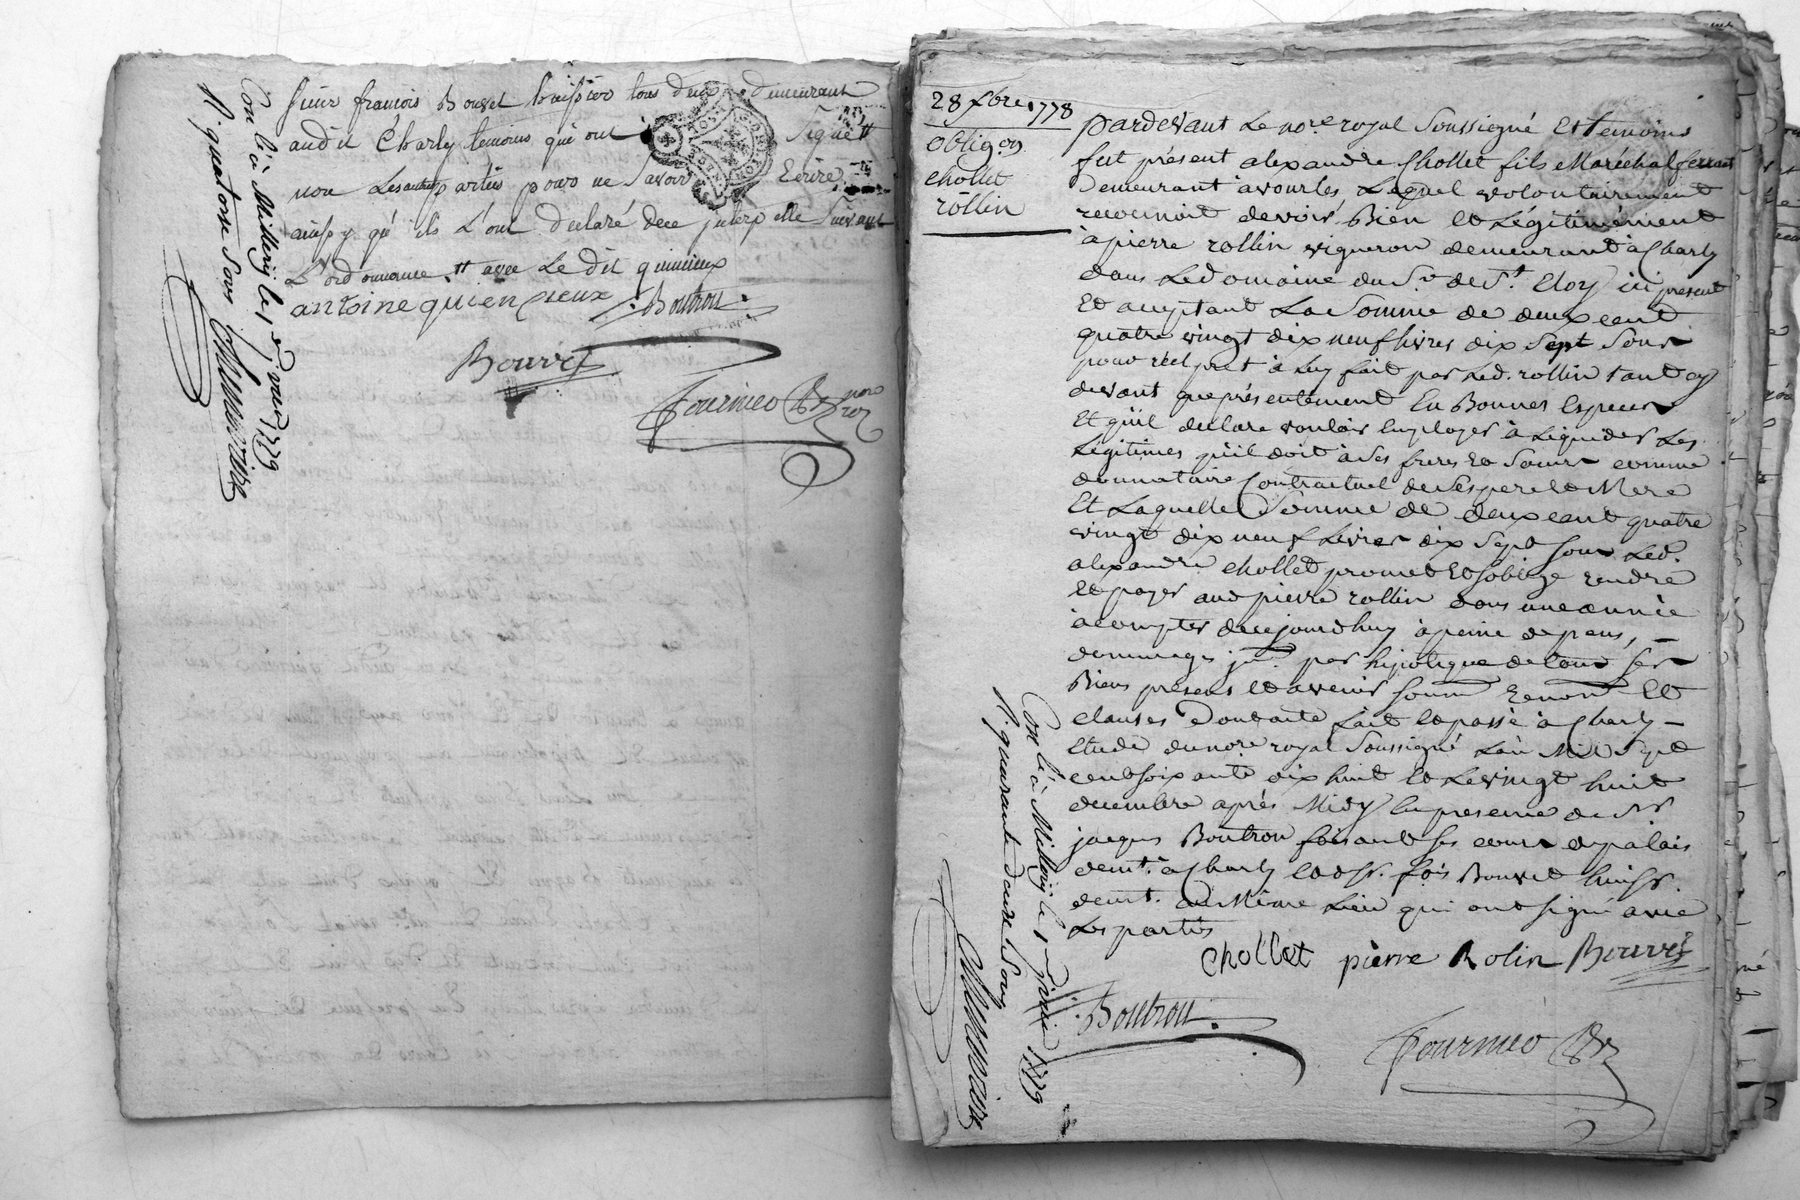 sieur francois Bouvet huissier tous deux demeurant
audit Charly temoins qui ont signé et
non les autres parties pour ne savoir Ecrire
ainsy qu'ils l'ont declaré de ce
L'ordonnance et avec Le dit quincieux
antoine quiencieux Boutron
Bouvet
fournier
Con lé à Millery le 9 janvier 1779
R. quatorze sous
28 xbre 1778
obligon
chollet
rollin
pardevant Le nore royal Soussigné Et temoins
fut présent alexandre Chollet fils Maréchal ferrant
Demeurant à vourles Lequel volontairement
reconnoit devoir Bien et Légitimement
à pierre rollin vigneron demeurant à Charly
dans Le domaine du Sr de St. Eloy ici present
Et acceptant La Somme de deux cent
quatre vingt dix neuf livres dix Sept Sous
pour réel pret à Luy fait par Led. rollin tant cy
devant que présentement En Bonnes Especes
Et qu'il declare vouloir Employer à Liquider Les
Légitimes qu'il doit à Ses freres Et Soeurs comme
donnataire Contractuel de Ses pere et Mere
Et Laquelle Somme de deux cent quatre
vingt dix neuf Livres dix Sept Sous Led.
alexandre chollet promet Et soblige rendre
Et payer aud pierre rollin dans une année
à compter de ce jourdhuy à peine de
dommages jts. par hipoteque de tous ses
Biens présens et avenir soum renon et
clauses Dont acte fait Et passé à Charly
Etude du nore royal Soussigné L'an Mil Sept
cent soixante dix huit et Le vingt huit
decembre après Midy En presence de Sr
jacques Boutron faisant ses cours de palais
demt. à Charly et de Sr. fois Bouvet huissr
demt. au Même Lieu qui ont signé avec
Les parties
Chollet pierre Rolin Bouvet
Boutron
fournier
Con lé à Millery le 9 janvier 1779
R. quarante deux sous